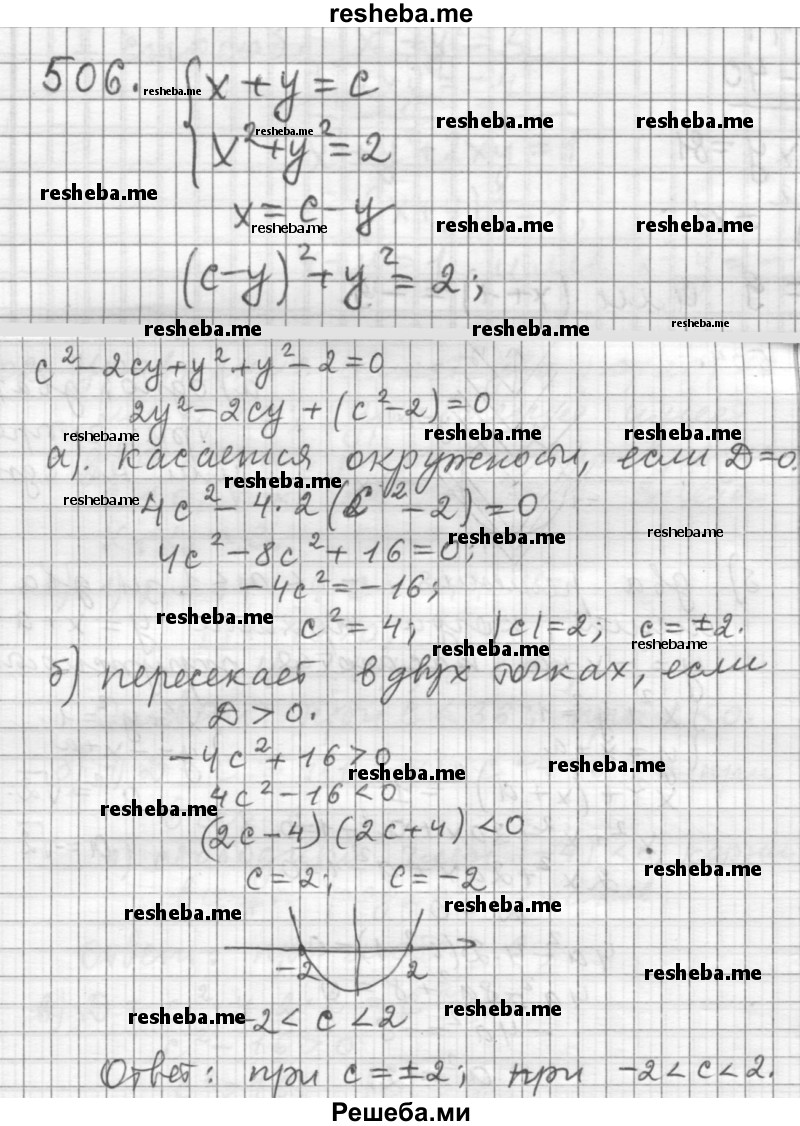 resheba.me
506. resheba.me x + y = c
resheba.me resheba.me resheba.me
x² + y² = 2
resheba.me
x = c - y
resheba.me resheba.me resheba.me
(c-y)² + y² = 2;
resheba.me resheba.me resheba.me
c² - 2cy + y² + y² - 2 = 0
2y² - 2cy + (c² - 2) = 0
resheba.me resheba.me resheba.me
а). касается окружности, если D = 0.
resheba.me
resheba.me 4c² - 4·2(c² - 2) = 0
resheba.me resheba.me
4c² - 8c² + 16 = 0;
-4c² = -16;
resheba.me
c² = 4; |c| = 2; c = ±2.
resheba.me resheba.me
б) пересекает в двух точках, если
D > 0.
-4c² + 16 > 0
resheba.me resheba.me
4c² - 16 < 0
resheba.me
(2c - 4)(2c + 4) < 0
resheba.me
c = 2; c = -2
resheba.me resheba.me
-2 2
resheba.me
resheba.me -2 < c < 2 resheba.me
Ответ: при c = ±2; при -2 < c < 2.
Решеба.ми